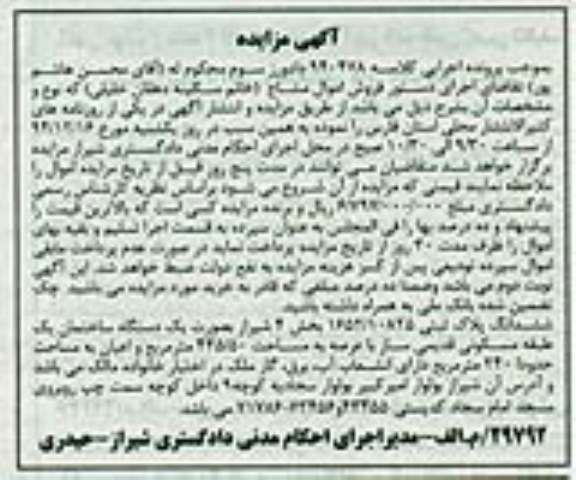 آگهی مزایده
بموجب پرونده اجرایی کلاسه ۹۴۰۴۷۸ بادورز سوم محکوم له (آقای محسن هاشم
پور) تقاضای اجرای دستور فروش اموال مشاع (خانم سکینه دهقان خلیلی) که نوع و
مشخصات آن بشرح ذیل می باشد از طریق مزایده و انتشار آگهی در یکی از روزنامه های
کثیرالانتشار محلی استان فارس را نموده به همین سبب در روز یکشنبه مورخ ۹۴/۱۲/۱۶
از ساعت ۹/۳۰ الی ۱۰/۳۰ صبح در محل اجرای احکام مدنی دادگستری شیراز مزایده
برگزار خواهد شد متقاضیان می توانند در مدت پنج روز قبل از تاریخ مزایده اموال را
ملاحظه نمایند قیمتی که مزایده از آن شروع می شود براساس نظریه کارشناس رسمی
دادگستری مبلغ ریال و برنده مزایده کسی است که بالاترین قیمت را
پیشنهاد و ده درصد بها را فی المجلس به عنوان سپرده به قسمت اجرا تسلیم و بقیه بهای
اموال را ظرف مدت ۳۰ روز از تاریخ مزایده پرداخت نماید در صورت عدم پرداخت مابقی
اموال سپرده تودیعی پس از کسر هزینه مزایده به نفع دولت ضبط خواهد شد. این آگهی
نوبت دوم می باشد وضمنا ده درصد مبلغی که قادر به خرید مورد مزایده می باشید. چک
تضمین شده بانک ملی به همراه داشته باشید.
ششدانگ پلاک ثبتی ۱۶۵۲/۱۰۸۲۵ بخش ۴ شیراز بصورت یک دستگاه ساختمان یک
طبقه مسکونی قدیمی ساز با عرصه به مساحت ۲۴۵/۵۰ مترمربع و اعیان به مساحت
حدودا ۲۴۰ مترمربع دارای انشعاب آب، برق، گاز ملک در اختیار خانواده مالک می باشد
و آدرس آن شیراز بولوار امیرکبیر بولوار سجادیه کوچه ۹ داخل کوچه سمت چپ روبروی
مسجد امام سجاد کدپستی ۷۱۷۸۶-۶۳۴۵۶و۴۳۴۵۵ می باشد.
۲۹۷۹۲/م.الف-مدیر اجرای احکام مدنی دادگستری شیراز-حیدری